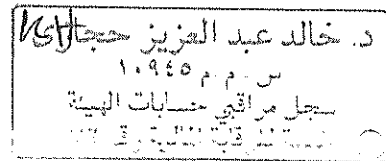 د. خالد عبد العزيز حجازى
س . م . م ١٠٩٤٥
سجل مراقبي حسابات الهيئة